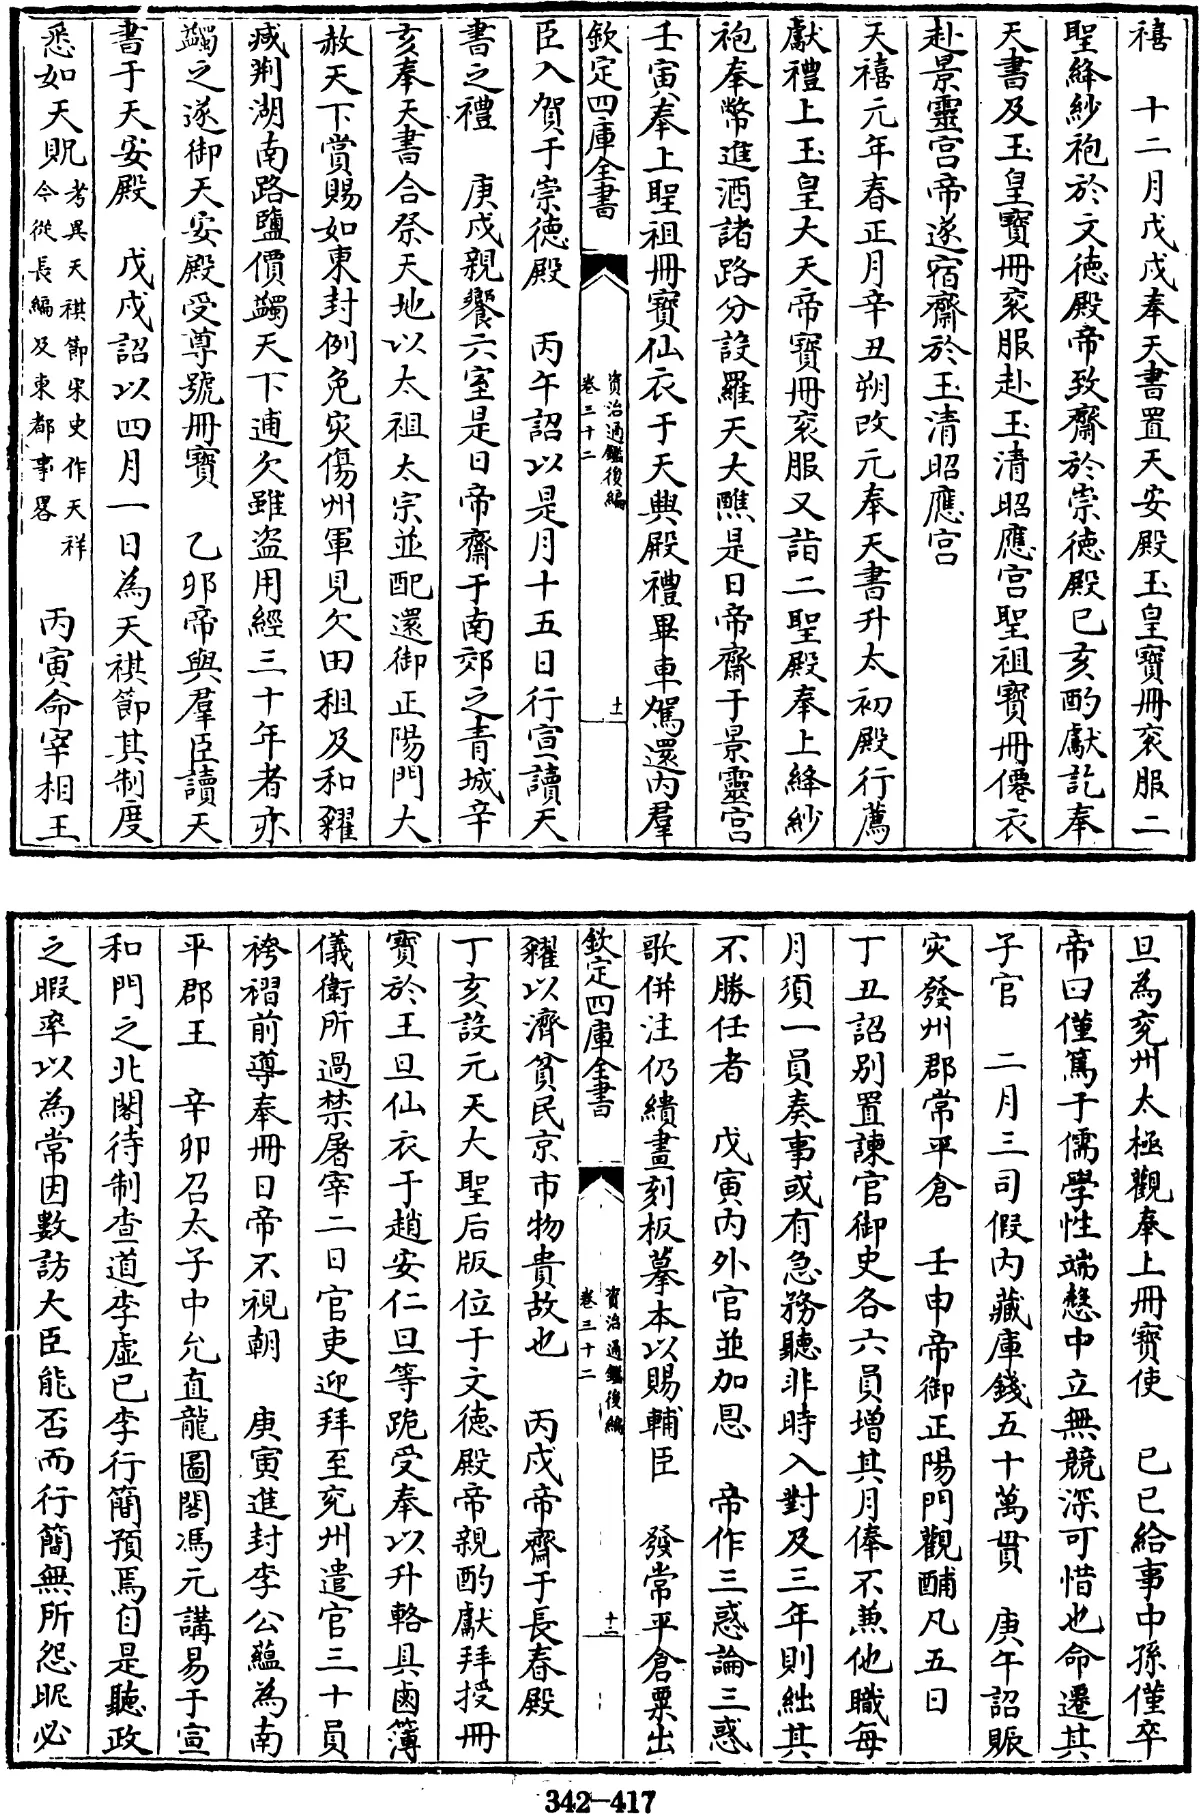 禧　十二月戊戌奉天書置天安殿玉皇寶冊衮服二
聖絳紗袍於文徳殿帝致齋於崇徳殿已亥酌獻訖奉
天書及玉皇寶冊衮服赴玉清昭應宫聖祖寶冊僊衣
赴景靈宫帝遂宿齋於玉清昭應宫
天禧元年春正月辛丑朔改元奉天書升太初殿行薦
獻禮上玉皇大天帝寶冊衮服又詣二聖殿奉上絳紗
袍奉幣進酒諸路分設羅天大醮是日帝齋于景靈宫
壬寅奉上聖祖冊寶仙衣于天興殿禮畢車駕還内羣
欽定四庫全書
資治通鑑後編
卷三十二
十一
臣入賀于崇徳殿　丙午詔以是月十五日行宣讀天
書之禮　庚戌親饗六室是日帝齋于南郊之青城辛
亥奉天書合祭天地以太祖太宗並配還御正陽門大
赦天下賞賜如東封例免災傷州軍見欠田租及和糴
减荆湖南路鹽價蠲天下逋欠雖盗用經三十年者亦
蠲之遂御天安殿受尊號冊寶　乙卯帝與羣臣讀天
書于天安殿　戊戌詔以四月一日為天祺節其制度
悉如天貺考異天祺節宋史作天祥今從長編及東都事畧　丙寅命宰相王
旦為兖州太極觀奉上冊寶使　已巳給事中孫僅卒
帝曰僅篤于儒學性端慤中立無競深可惜也命遷其
子官　二月三司假内藏庫錢五十萬貫　庚午詔賑
灾發州郡常平倉　壬申帝御正陽門觀酺凡五日
丁丑詔别置諫官御史各六員增其月俸不兼他職每
月須一員奏事或有急務聽非時入對及三年則絀其
不勝任者　戊寅内外官並加恩　帝作三惑論三惑
歌併注仍繢畫刻板摹本以賜輔臣　發常平倉粟出
欽定四庫全書
資治通鑑後編
卷三十二
十二
糴以濟貧民京市物貴故也　丙戌帝齋于長春殿
丁亥設元天大聖后版位于文徳殿帝親酌獻拜授冊
寶於王旦仙衣于趙安仁旦等跪受奉以升輅具鹵簿
儀衛所過禁屠宰二日官吏迎拜至兖州遣官三十員
袴褶前導奉冊日帝不視朝　庚寅進封李公藴為南
平郡王　辛卯召太子中允直龍圖閣馮元講易于宣
和門之北閣待制查道李虚已李行簡預焉自是聽政
之暇率以為常因數訪大臣能否而行簡無所怨昵必
342-417